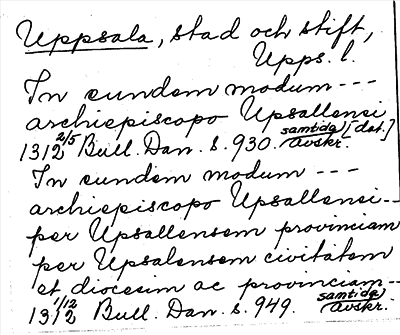 Uppsala, stad och stift,
Upps. l.
In eundem modum ---
archiepiscopo Upsallensi
1312 2/5 Bull. Dan. s. 930. samtida [dat.] avskr.
In eundem modum ---
archiepiscopo Upsallensi --
per Upsallensem provinciam
per Upsalensem civitatem
et diocesim ac provinciam --
1312 1/12 Bull. Dan. s. 949. samtida avskr.